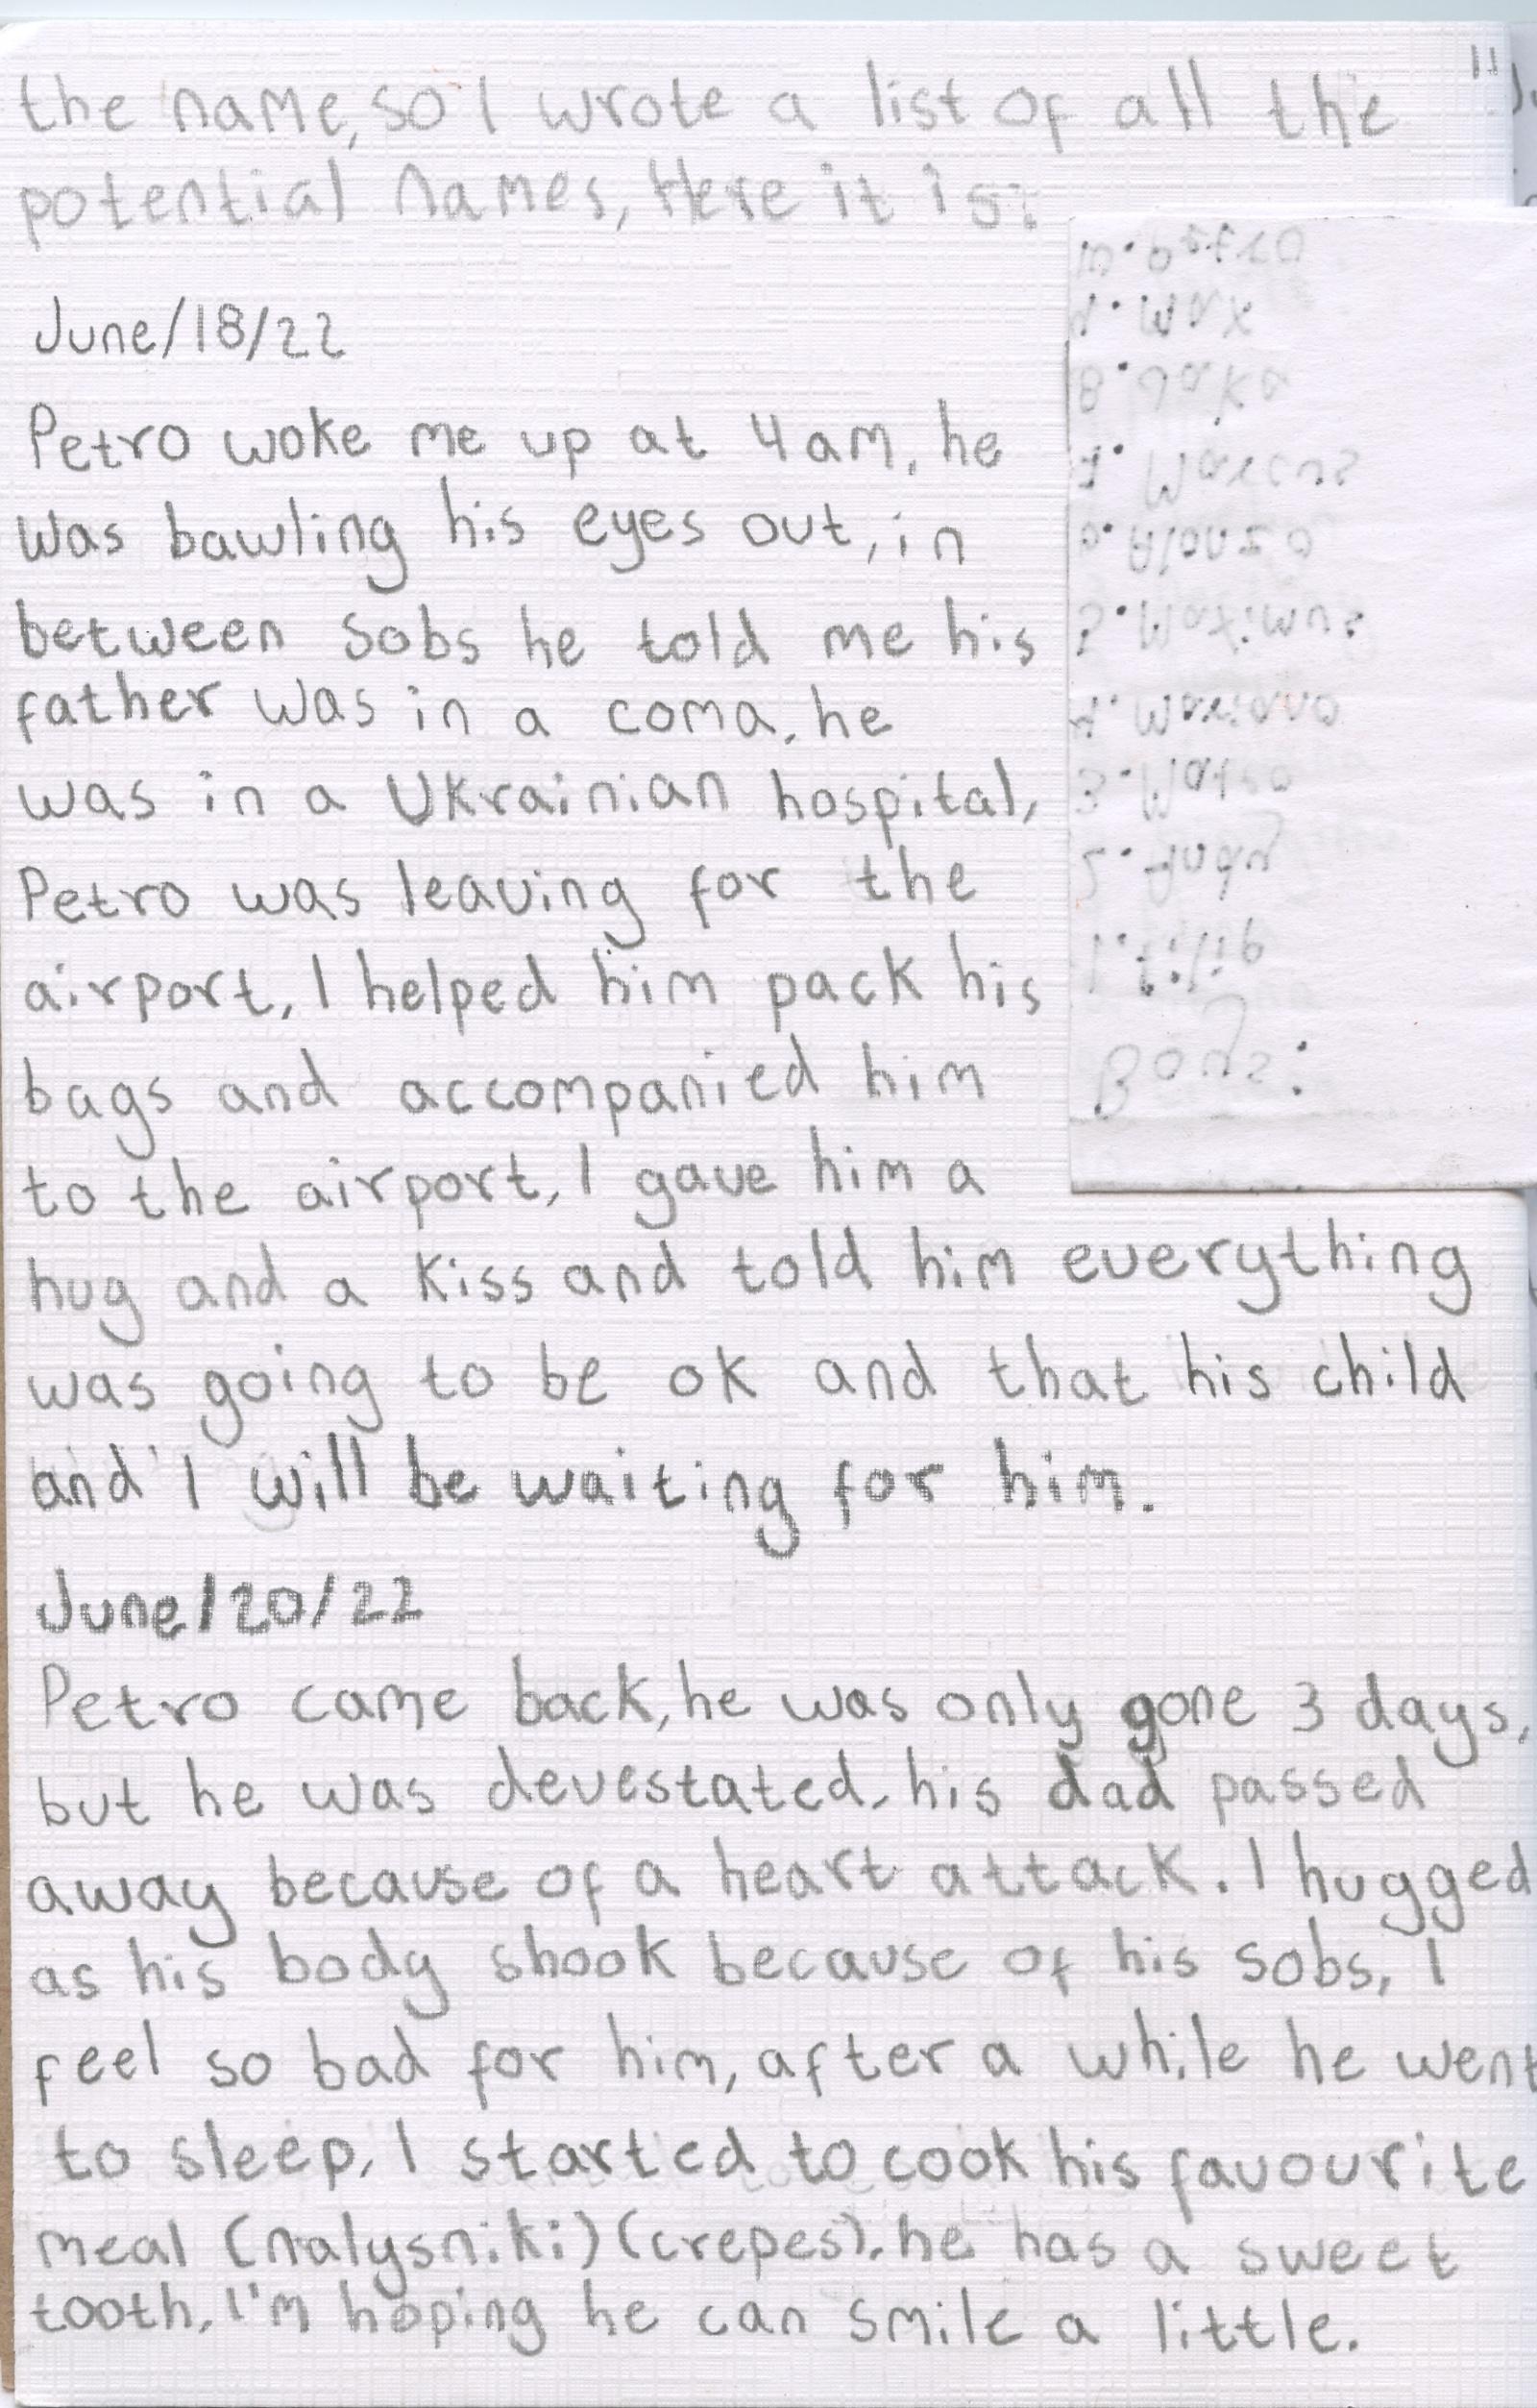 11
the name, so I wrote a list of all the
potential names, Here it is:
June/18/22
Petro woke me up at 4am, he
was bawling his eyes out, in
between sobs he told me his
father was in a coma, he
was in a Ukrainian hospital,
Petro was leaving for the
airport, I helped him pack his
bags and accompanied him
to the airport, I gave him a
hug and a kiss and told him everything
was going to be ok and that his child
and I will be waiting for him.
June/20/22
Petro came back, he was only gone 3 days,
but he was devestated, his dad passed
away because of a heart attack. I hugged
as his body shook because of his sobs, I
feel so bad for him, after a while he went
to sleep, I started to cook his favourite
meal (nalysniki) (crepes), he has a sweet
tooth, I'm hoping he can smile a little.
Boys:
1. Filip
2.
3. Mateo
4. Mariano
5. Maximus
6. Alonzo
7. Marcus
8.
9. Max